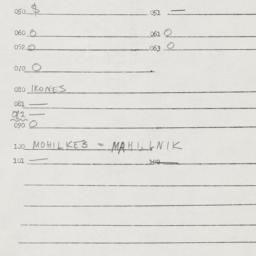 050 $ 051 —
060 0 061 0
062 0 063 0
070 0
080 IKONES
081 —
082 —
090 0
100 MOHILKES - MAHILNIK
101 —